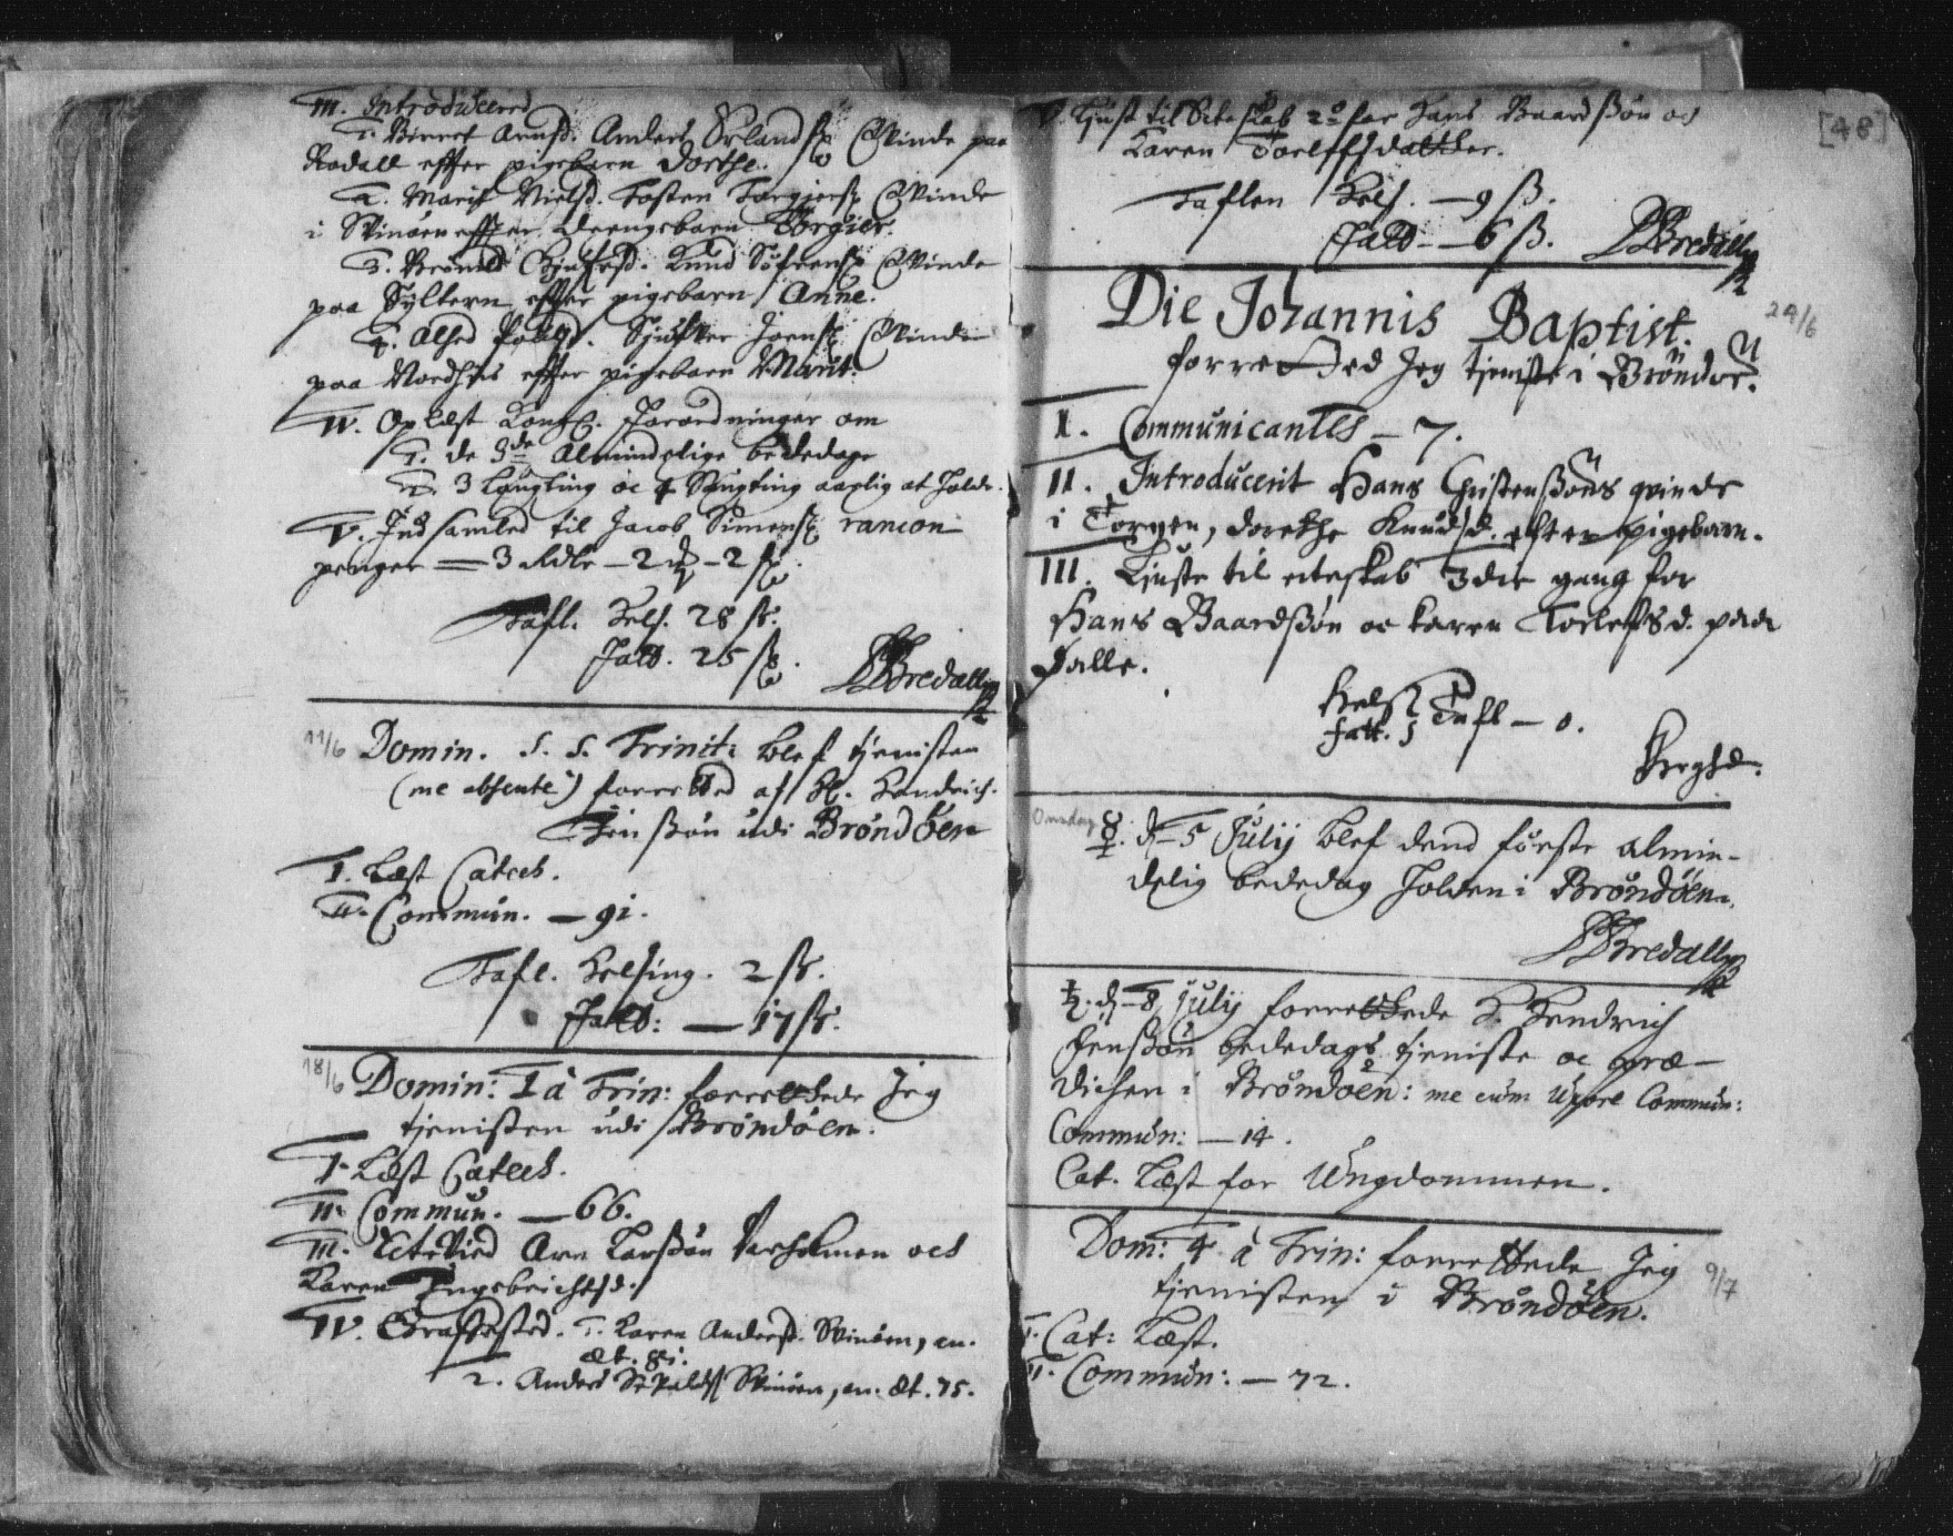 III. Introduceered
1. Birret Arnsd. Anders Ørlands. Qvinde paa
Rodall effter pigebarn Dorthe.
2. Marit Nielsd. Tosten Torgiers. Qvinde
i Vinøen effter Drengebarn Torgier.
3. Knud Søfrens. Qvinde
paa Sylteren effter pigebarn Anne.
4. Sjufver Joens. Qvinde
paa Nordhus effter pigebarn Marit.
IV. Oplæst Kongl. Forordninger om
1. de 3de Almindelige bededage
2. 3 Laugting oc 4 aarlig at holde.
V. Indsamled til Jacob Simens. rancon
penger — 3 Rdlr — 2 — 2 s.
Tafl. Hels. 28 s.
Fatt. 25 s.
Bredall
11/6 Domin. S. S. Trinit: blef tjenisten
(me absente) forretted af H. Hendrich
Jenssøn udi Brøndøen
I. Læst Catech.
II. Commun. — 91.
Tafl. Helsing. 2 s.
Fatt: — 17 s.
18/6 Domin: 1 à Trin: forrettede Jeg
tjenisten udi Brøndøen.
I. Læst Catech.
II. Commun. — 66.
III. Ectevied Arn Larssøn Torholmen och
Karen Ingebrichtsd.
IV. Graffested. 1. Karen Andersd. Vinøen, an.
æt. 81.
2. Anders Vinøen, an. æt. 75.
[48]
V. Liust til Ecteskab 2o for Hans Baardssøn oc
Karen Toelffsdatter.
Taflen Hels. — 9 ß.
Fatt — 6 ß. Bredall
Die Johannis Baptist. 24/6
forretted Jeg tjeniste i Brøndøe.
I. Communicantes — 7.
II. Introducerit Hans Christenssøns qvinde
i Torgen, Dorethe Knudsd. efter pigebarn.
III. Liuste til ecteskab 3die gang for
Hans Baardssøn oc Karen Toelefsd. paa
Salle.
Hels
Fatt. } Tafl — 0.
Onsdag ☿. d. 5 Julij blef dend første almin-
delig bededag holden i Brøndøen.
Bredall
♄. d. 8 Julij forrettede H. Hendrich
Jenssøn bededags tjeniste oc præ-
dichen i Brøndøen: me cum Uxore Commun:
Commun: — 14.
Cat. Læst for Ungdommen.
Dom: 4 à Trin: forrettede Jeg 9/7
tjenisten i Brøndøen.
I. Cat: Læst.
II. Commun: — 72.